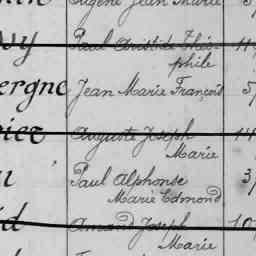 Eugène Jean Marie
Paul Aristide Théo-
phile
ergne Jean Marie François
Auguste Joseph
Marie
Paul Alphonse
Marie Edmond
Amand Joseph
Marie